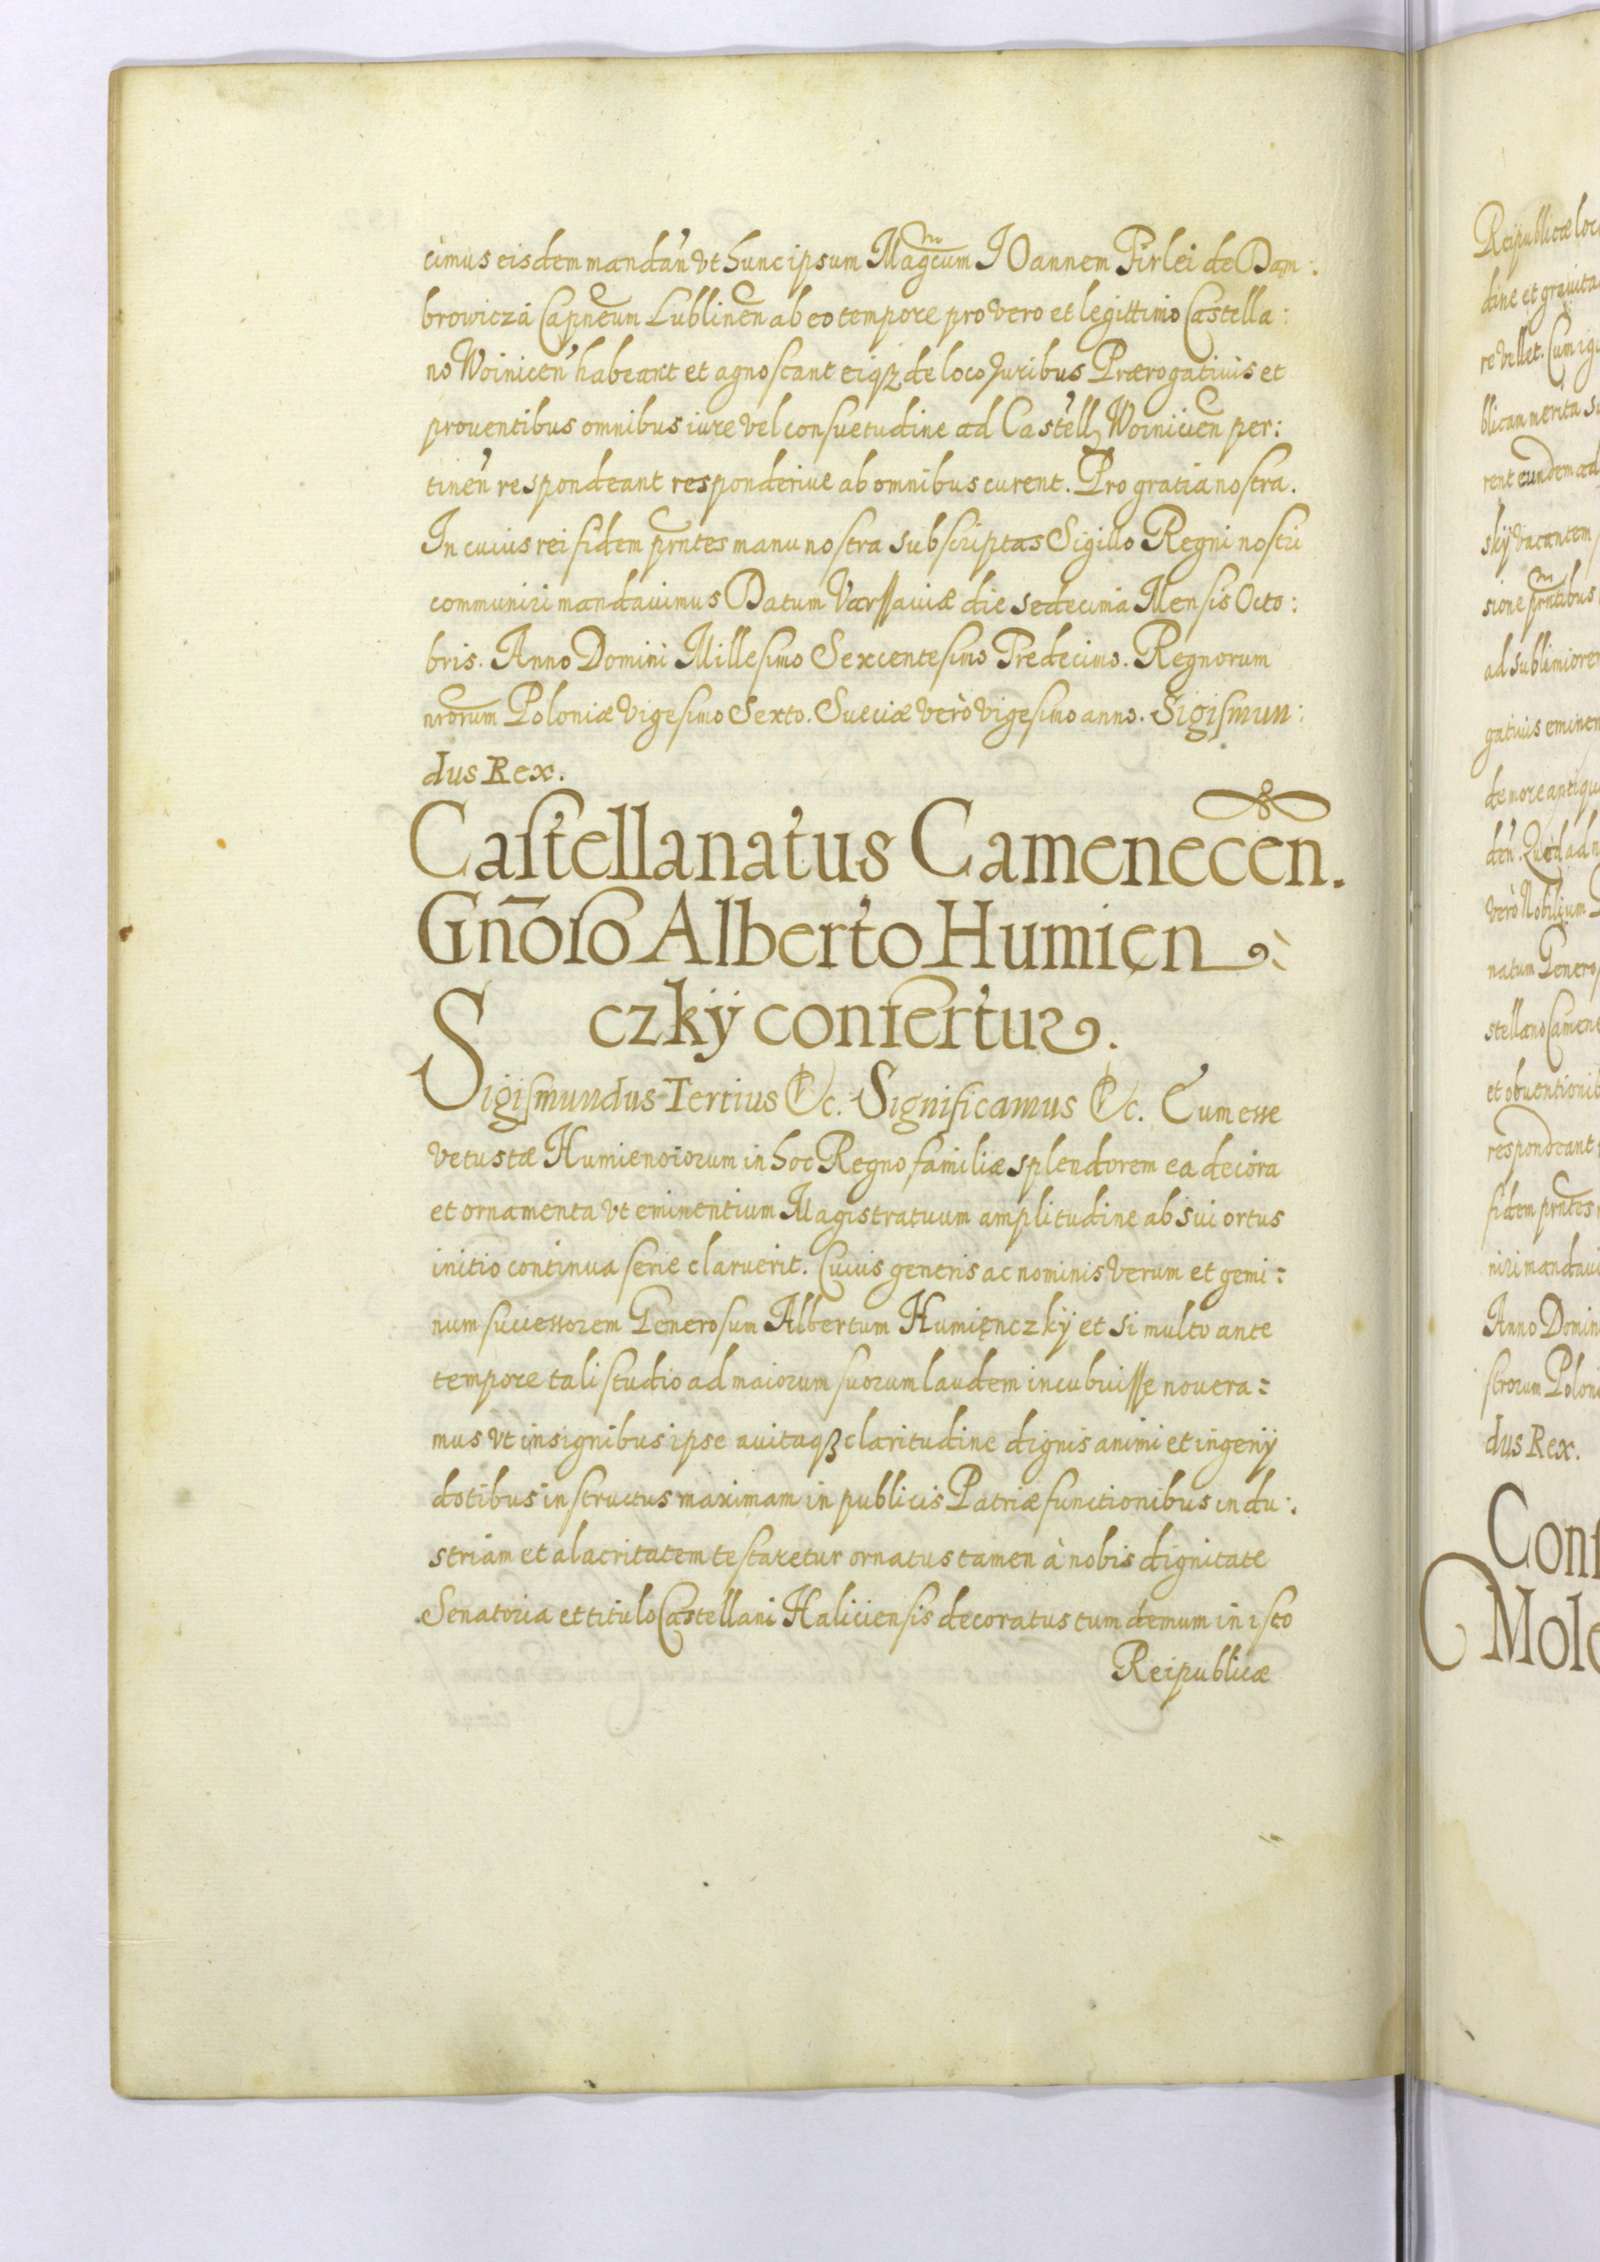 cimus eisdem mandan̄ vt hunc ipsum Magcum IOannem Firlei de Dąm:
browicza Capneum Lublinen ab eo tempore pro vero et legittimo Castella:
no Woinicen̄ habeant et agnoscant eiqꝫ de loco Juribus Prærogatiuis et
prouentibus omnibus iure vel consuetudine ad Castell Woinicien per:
tinen̄ respondeant responderiue ab omnibus curent. Pro gratia nostra.
In cuius rei fidem prntes manu nostra subscriptas Sigillo Regni nostri
communiri mandauimus Datum Varssauiæ die sedecima Mensis Octo:
bris. Anno Domini Millesimo Sexcentesimo Tredecimo. Regnorum
nrorum Poloniæ Vigesimo Sexto. Sueciæ verò vigesimo anno. Sigismun:
dus Rex.
Castellanatus Camenecen.
Gn̄oso Alberto Humięn
czkÿ confertur.
Sigismundus Tertius &c. Significamus &c. Cum esse
vetustæ Humieniorum in hoc Regno familiæ splendorem ea decora
et ornamenta vt eminentium Magistratuum amplitudine ab sui ortus
initio continua serie claruerit. Cuius generis ac nominis verum et gemi=
num successorem Generosum Albertum Humięnczkÿ et si multo ante
tempore tali studio ad maiorum suorum laudem incubuisse nouera=
mus vt insignibus ipse auitaqꝫ claritudine dignis animi et ingenÿ
dotibus instructus maximam in publicis Patriæ functionibus indu:
striam et alacritatem testaretur ornatus tamen à nobis dignitate
Senatoria et titulo Castellani Haliciensis decoratus tum demum in isto
Reipublicæ
Reipublicæ loc
dine et grauita
re vellet. Cum igi
blicam merita su
rent eundem ad
skÿ vacantem
sione prntibus
ad sublimiore
gatiuis eminen
de more antiqu
den̄. Quod ad n
verò Nobilium
natum Genero
stellano Camene
et obuentionib
respondeant
fidem prntes
niri mandaui
Anno Domin
strorum Poloni
dus Rex.
Conf
Mole